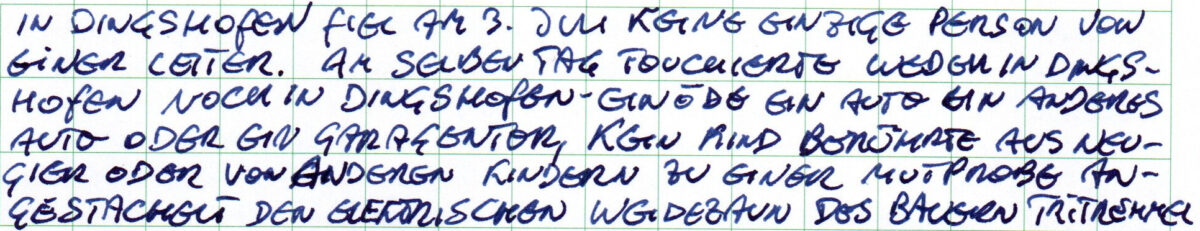 IN DINGSHOFEN FIEL AM 3. JULI KEINE EINZIGE PERSON VON
EINER LEITER. AM SELBEN TAG TOUCHIERTE WEDER IN DINGS-
HOFEN NOCH IN DINGSHOFEN-EINÖDE EIN AUTO EIN ANDERES
AUTO ODER EIN GARAGENTOR, KEIN KIND BERÜHRTE AUS NEU-
GIER ODER VON ANDEREN KINDERN ZU EINER MUTPROBE AN-
GESTACHELT DEN ELEKTRISCHEN WEIDEZAUN DES BAUERN TRITREMMEL